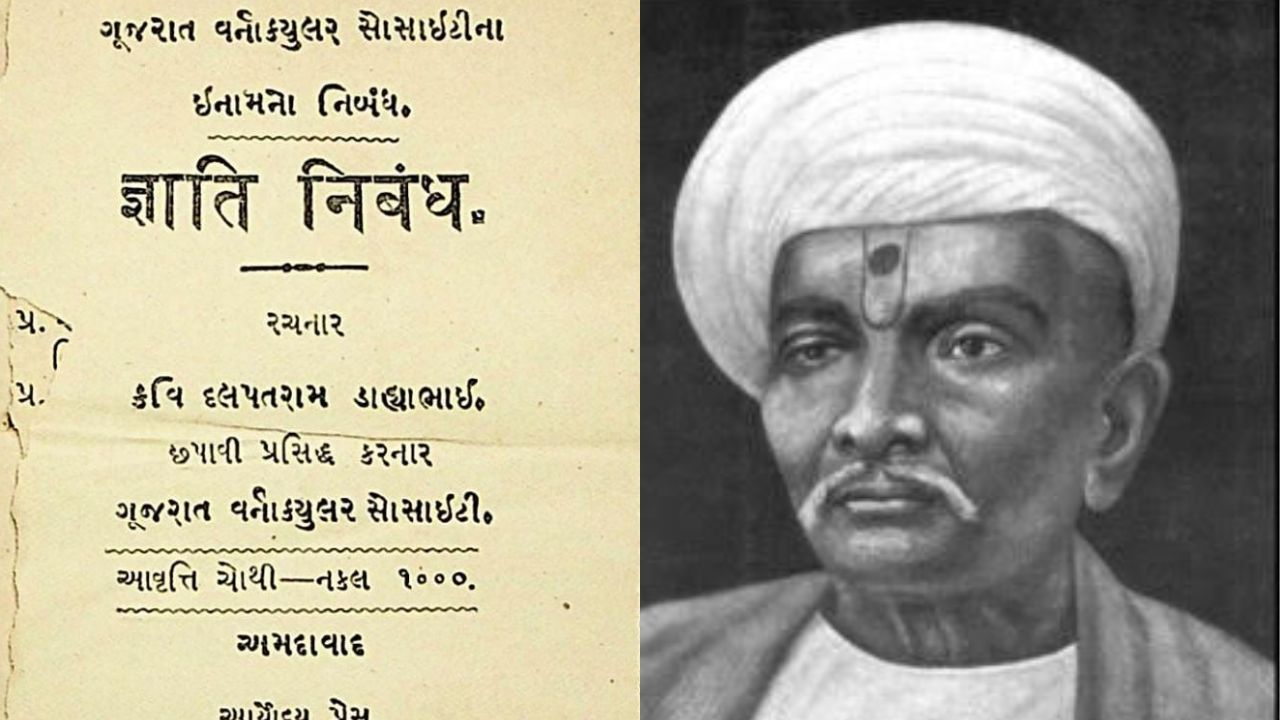 ગૂજરાત વર્નાક્યુલર સોસાઇટીના
ઇનામનો નિબંધ.
જ્ઞાતિ નિબંધ.
પ્ર.
રચનાર
પ્ર.
કવિ દલપતરામ ડાહ્યાભાઈ.
છપાવી પ્રસિદ્ધ કરનાર
ગૂજરાત વર્નાક્યુલર સોસાઇટી.
આવૃત્તિ ચોથી—નકલ ૧૦૦૦.
અમદાવાદ